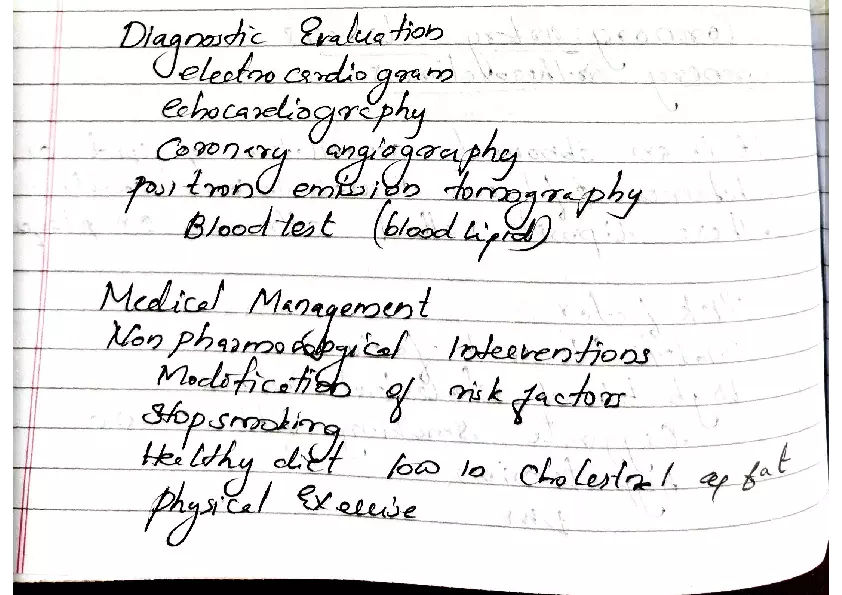 Diagnostic Evaluation
electrocardiogram
echocardiography
Coronary angiography
positron emission tomography
Blood test (blood lipid)
Medical Management
Non pharmological Interventions
Modification of risk factors
Stop smoking
Healthy diet low in cholestral fat
Physical Exercise